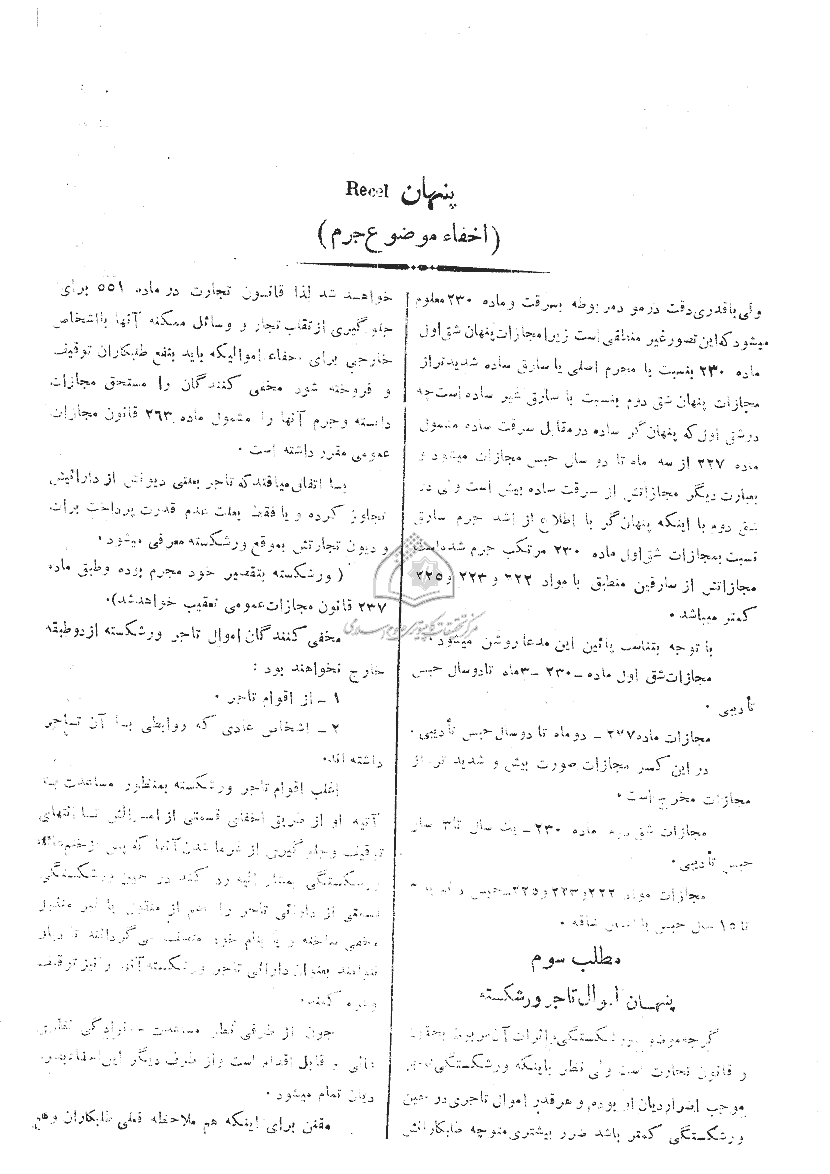 پنهان Recel
(اخفاء موضوع جرم)
ولی باقدری دقت در مورد مربوطه بسرقت و ماده ۲۳۰ معلوم
میشود که این تصور غیر منطقی است زیرا مجازات پنهان شق اول
ماده ۲۳۰ بنسبت با مجرم اصلی یا سارق ساده شدیدتر از
مجازات پنهان شق دوم بنسبت با سارق غیر ساده است چه
در شق اول که پنهان گر ساده در مقابل سرقت ساده مشمول
ماده ۲۲۷ از سه ماه تا دو سال حبس مجازات میشود و
بعبارت دیگر مجازاتش از سرقت ساده بیش است ولی در
شق دوم با اینکه پنهان گر با اطلاع از اشد جرم سارق
نسبت بمجازات شق اول ماده ۲۳۰ مرتکب جرم شده است
مجازاتش از سارقین منطبق با مواد ۲۲۲ و ۲۲۳ و ۲۲۵
کمتر میباشد .
با توجه بتناسب پائین این مدعا روشن میشود .
مجازات شق اول ماده ـ ۲۳۰ ـ ۳ماه تا دوسال حبس
تأدیبی .
مجازات ماده ۲۲۷ ـ دو ماه تا دو سال حبس تأدیبی .
در این کسر مجازات صورت بیش و شدید تر از
مجازات مخرج است .
مجازات شق دوم ماده ۲۳۰ ـ یک سال تا ۳ سال
حبس تأدیبی .
مجازات مواد ۲۲۲ و ۲۲۳ و ۲۲۵ ـ حبس
تا ۱۵ سال حبس با شاقه .
مطلب سوم
پنهان اموال تاجر ورشکسته
گرچه موضوع ورشکستگی و اثرات آن مربوط بحقوق
و قانون تجارت است ولی نظر باینکه ورشکستگی
موجب اضرار دیان او بوده و هر قدر اموال تاجری در حین
ورشکستگی کمتر باشد ضرر بیشتری متوجه طلبکارانش
خواهد شد لذا قانون تجارت در ماده ۵۵۱ برای
جلوگیری از تقلب تجار و وسائل ممکنه آنها با اشخاص
خارجی برای اخفاء اموالیکه باید بنفع طلبکاران توقیف
و فروخته شود مخفی کنندگان را مستحق مجازات
دانسته و جرم آنها را مشمول ماده ۲۶۳ قانون مجازات
عمومی مقرر داشته است .
بسا اتفاق میافتد که تاجر یعنی دیونش از دارائیش
تجاوز کرده و یا فقط بعلت عدم قدرت پرداخت برات
و دیون تجارتش بموقع ورشکسته معرفی میشود .
( ورشکسته بتقصیر خود مجرم بوده و طبق ماده
۲۳۷ قانون مجازات عمومی تعقیب خواهد شد).
مخفی کنندگان اموال تاجر ورشکسته از دو طبقه
خارج نخواهند بود :
۱ ـ از اقوام تاجر .
۲ ـ اشخاص عادی که روابطی با آن تاجر
داشته اند.
اغلب اقوام تاجر ورشکسته بمنظور مساعدت به
آتیه او از طریق اخفای قسمتی از اموالش
توقیف و جلوگیری از غرما شدن آنها که پس از خاتمه
ورشکستگی بمشار الیه رد کند در حین ورشکستگی
قسمتی از دارائی تاجر را اعم از منقول یا غیر منقول
مخفی ساخته و یا بنام خود منتقل می گردانند تا دیان
نتوانند بعنوان دارائی تاجر ورشکسته آنها را نیز توقیف
وغیره کنند.
چون از طرفی نظر مساعدت خانوادگی
عالی و قابل اقدام است و از طرف دیگر این اخفاء بضرر
دیان تمام میشود .
مقنن برای اینکه هم ملاحظه قطعی طلبکاران و هم
مرکز تحقیقات کامپیوتری علوم اسلامی